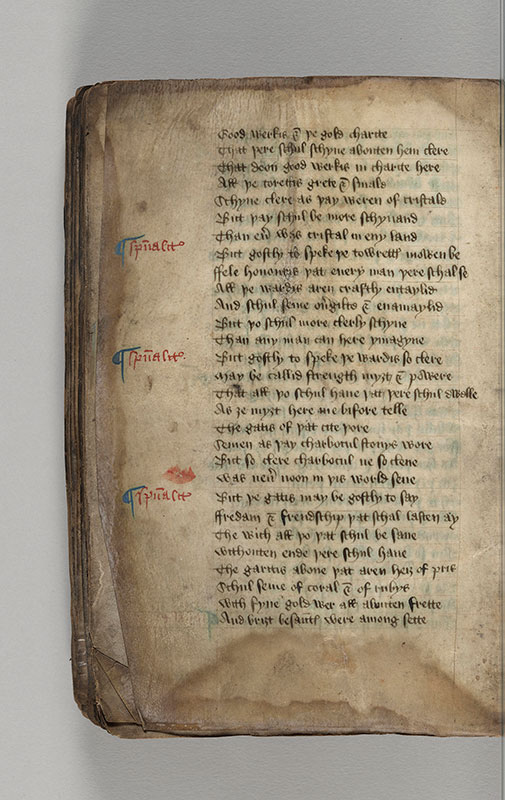 Good werkis & þe gold charite
That þere schul schyne abouten hem clere
That doon good werkis in charite here
All þe torettis grete & smale
Schyne clere as þay weren of cristale
But þay schul be more schynand
Than eu̅ was cristal in eny land
¶ sp̅ualit̅
But gostly to speke þe towretts mowen be
ffele honouris þat euery man þere schal se
All þe wardis aren craftly entaylid
And schul seme ou̅gilte & enamaylid
But þo schul more clerly schyne
Than any man can here ymagyne
¶ sp̅ualit̅
But gostly to speke þe wardis so clere
May be callid strength myȝt & powere
That all þo schul haue þat þere schul dwelle
As ȝe myȝt here me bifore telle
The gatis of þat cite þore
Semen as þay charbocul stonys wore
But so clere charbocul ne so clene
Was neu̅ noon in þis world sene
¶ sp̅ualit̅
But þe gatis may be gostly to say
ffredam & frendschip þat schal lasten ay
The wich all þo þat schul be saue
Withouten ende þere schul haue
The garitis aboue þat aren heiȝ of pris
Schul seme of coral & of rubys
With fyne gold wer all abouten frette
And briȝt besauntȝ were among sette